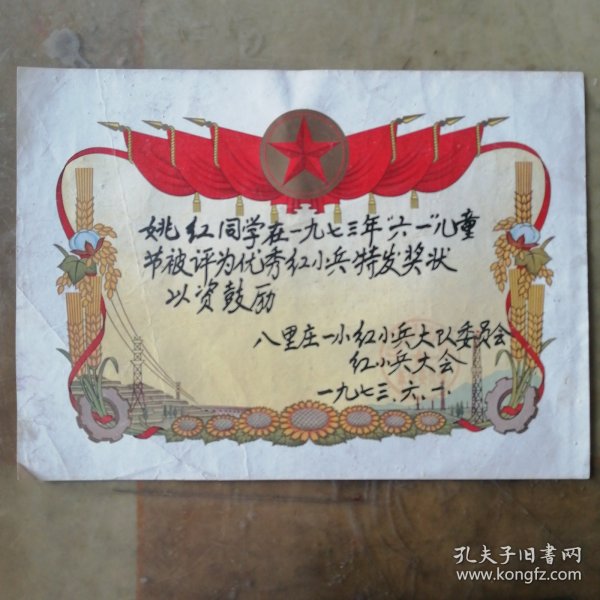 姚红同学在一九七三年"六一"儿童
节被评为优秀红小兵特发奖状
以资鼓励
八里庄一小红小兵大队委员会
红小兵大会
一九七三.六.一.
孔夫子旧书网
www.kongfz.com